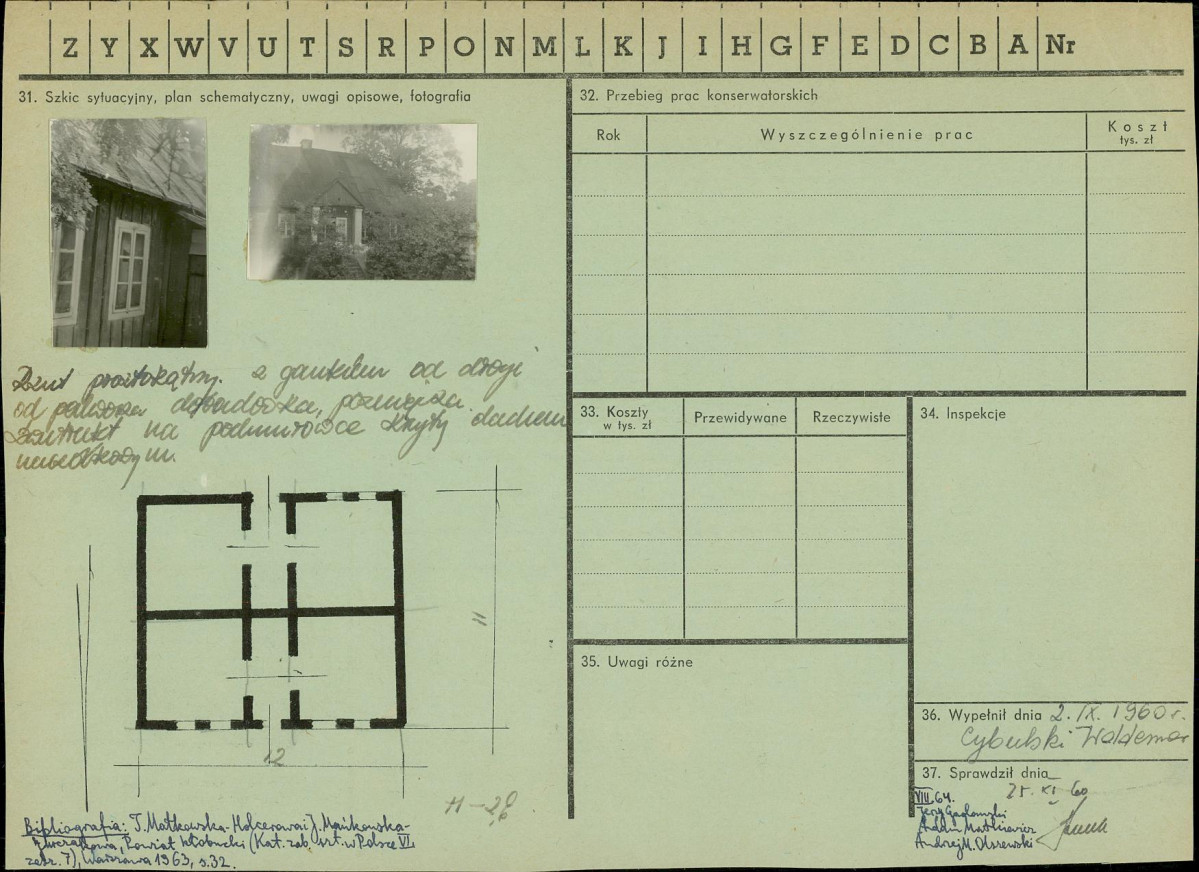 Z Y X W V U T S R P O N M L K J I H G F E D C B A Nr
31. Szkic sytuacyjny, plan schematyczny, uwagi opisowe, fotografia
prostokątny. z gankiem od drogi
od podwórza dobudówka, późniejsza.
na podmurówce kryty dachem
naczółkowym.
11
12
H – 2,8
Bibliografia: T. Małkowska-Holcerowa i J. Mańkowska-
Powiat kłobucki (Kat. zab. szt. w Polsce VI,
zesz. 7), Warszawa 1963, s. 32.
32. Przebieg prac konserwatorskich
Rok
Wyszczególnienie prac
Koszt
tys. zł
33. Koszty
w tys. zł
Przewidywane
Rzeczywiste
34. Inspekcje
35. Uwagi różne
36. Wypełnił dnia 2. IX. 1960 r.
Cybulski Waldemar
37. Sprawdził dnia
25. XI 60
VIII. 64.
Andrzej M. Olszewski